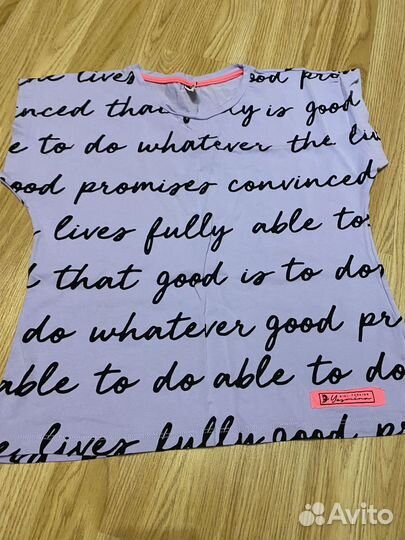 lives good pro
inced that fully is good
e to do whatever the liv
ood promises convinced
lives fully able to
d that good is to do
do whatever good pr
able to do able to do
e lives fully good prom
GIRL FASHION
Yasmina
Avito